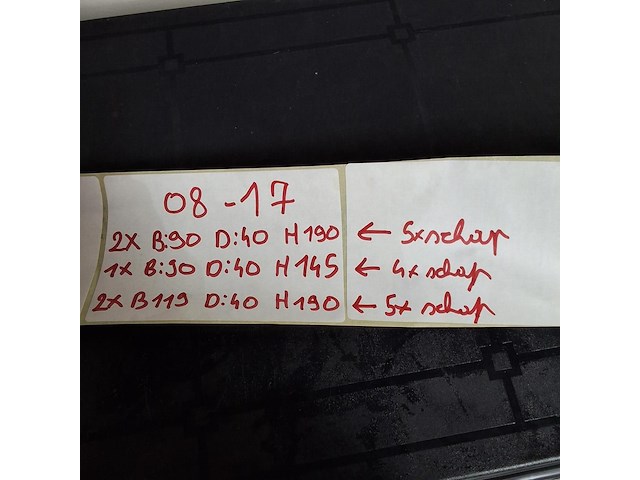 08-17
2x B:90 D:40 H190 ← 5x schap
1x B:90 D:40 H145 ← 4x schap
2x B119 D:40 H190 ← 5x schap